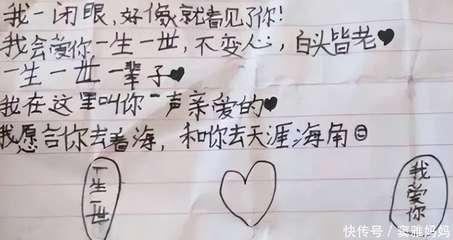 我一闭眼，好像就看见了你!
我会爱你一生一世，不变心，白头皆老♥
一生一世一辈子♥
我在这里叫你一声亲爱的♥
我愿言你去看海，和你去天涯海角☺
一生一世
我爱你
快传号/窦雅妈妈